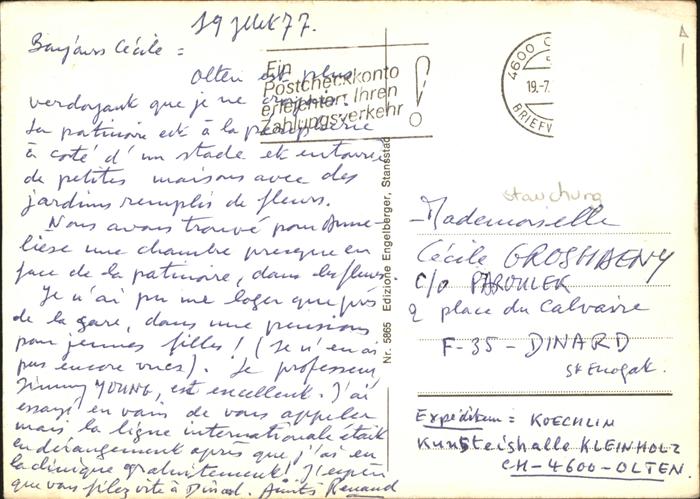 19 juillet 77.
Bonjour Cécile =
Olten est plus
verdoyant que je ne croyais.
La patinoire est à la périphérie
à coté d'un stade et entourée
de petites maisons avec des
jardins remplis de fleurs.
Nous avons trouvé pour Anne-
liese une chambre presque en
face de la patinoire, dans les fleurs.
Je n'ai pu me loger que près
de la gare, dans une pension
pour jeunes filles! (Je n'en ai
pas encore vues). Le professeur,
Jimmy YOUNG, est excellent. J'ai
essayé en vain de vous appeler
mais la ligne internationale était
en dérangement après que j'ai en
la clinique gratuitement! J'espère
que vous filez vite à Dinard. Amitiés Renaud
Ein
Postcheckkonto
erleichtert Ihren
Zahlungsverkehr!
4600
19.-7.
BRIEFV
Nr. 5865 Edizione Engelberger, Stansstad
Mademoiselle
Cécile GROSHAENY
c/o PAROULEK
2 place du Calvaire
F-35-DINARD
St Enogat.
Expéditeur = KOECHLIN
Kunsteishalle KLEINHOLZ
CH-4600-OLTEN